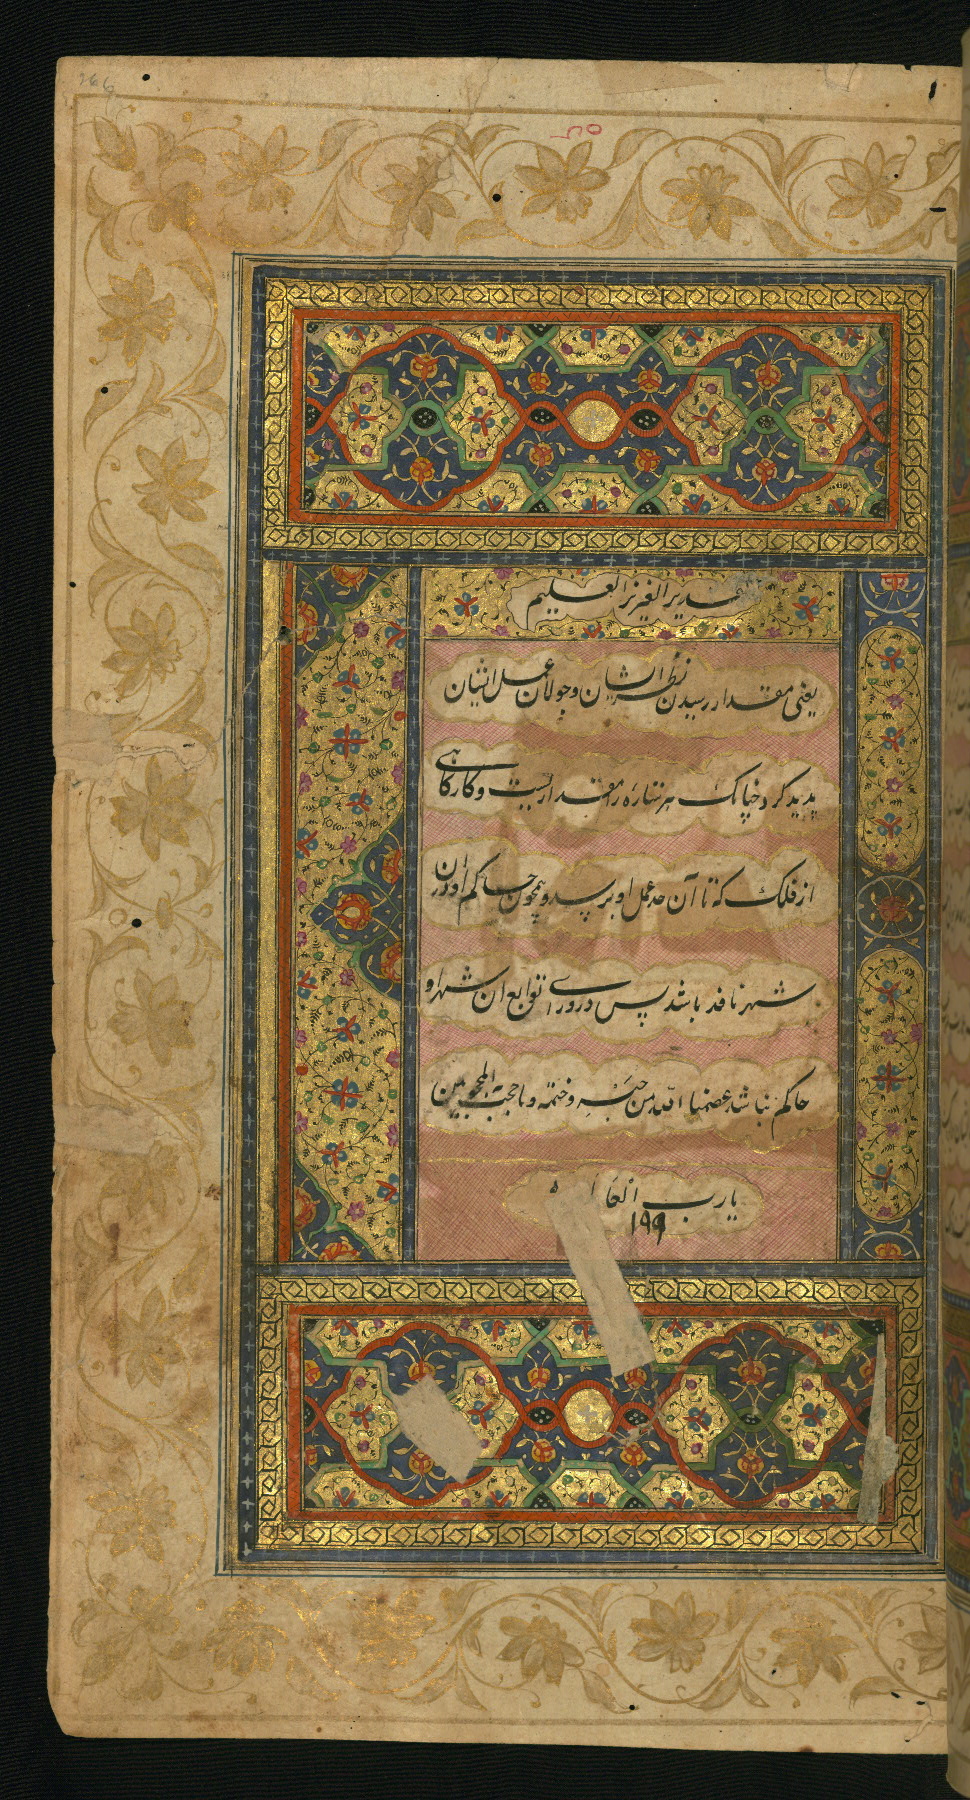 تقدیر العزیز العلیم
یعنی مقدار رسیدن نظر ایشان و جولان عمل ایشان
پدید کرد چنانک هر ستاره را مقداریست و کارگاهی
از فلک که تا آن حد عمل او برسد و همچون حاکم او در آن
شهر نافذ باشد پس در ورای توابع آن شهر او
حاکم نباشد عصمنا الله من حجبه و ختمه و ما حجب به المحجوبین
یا رب العا
۱۹۹
266